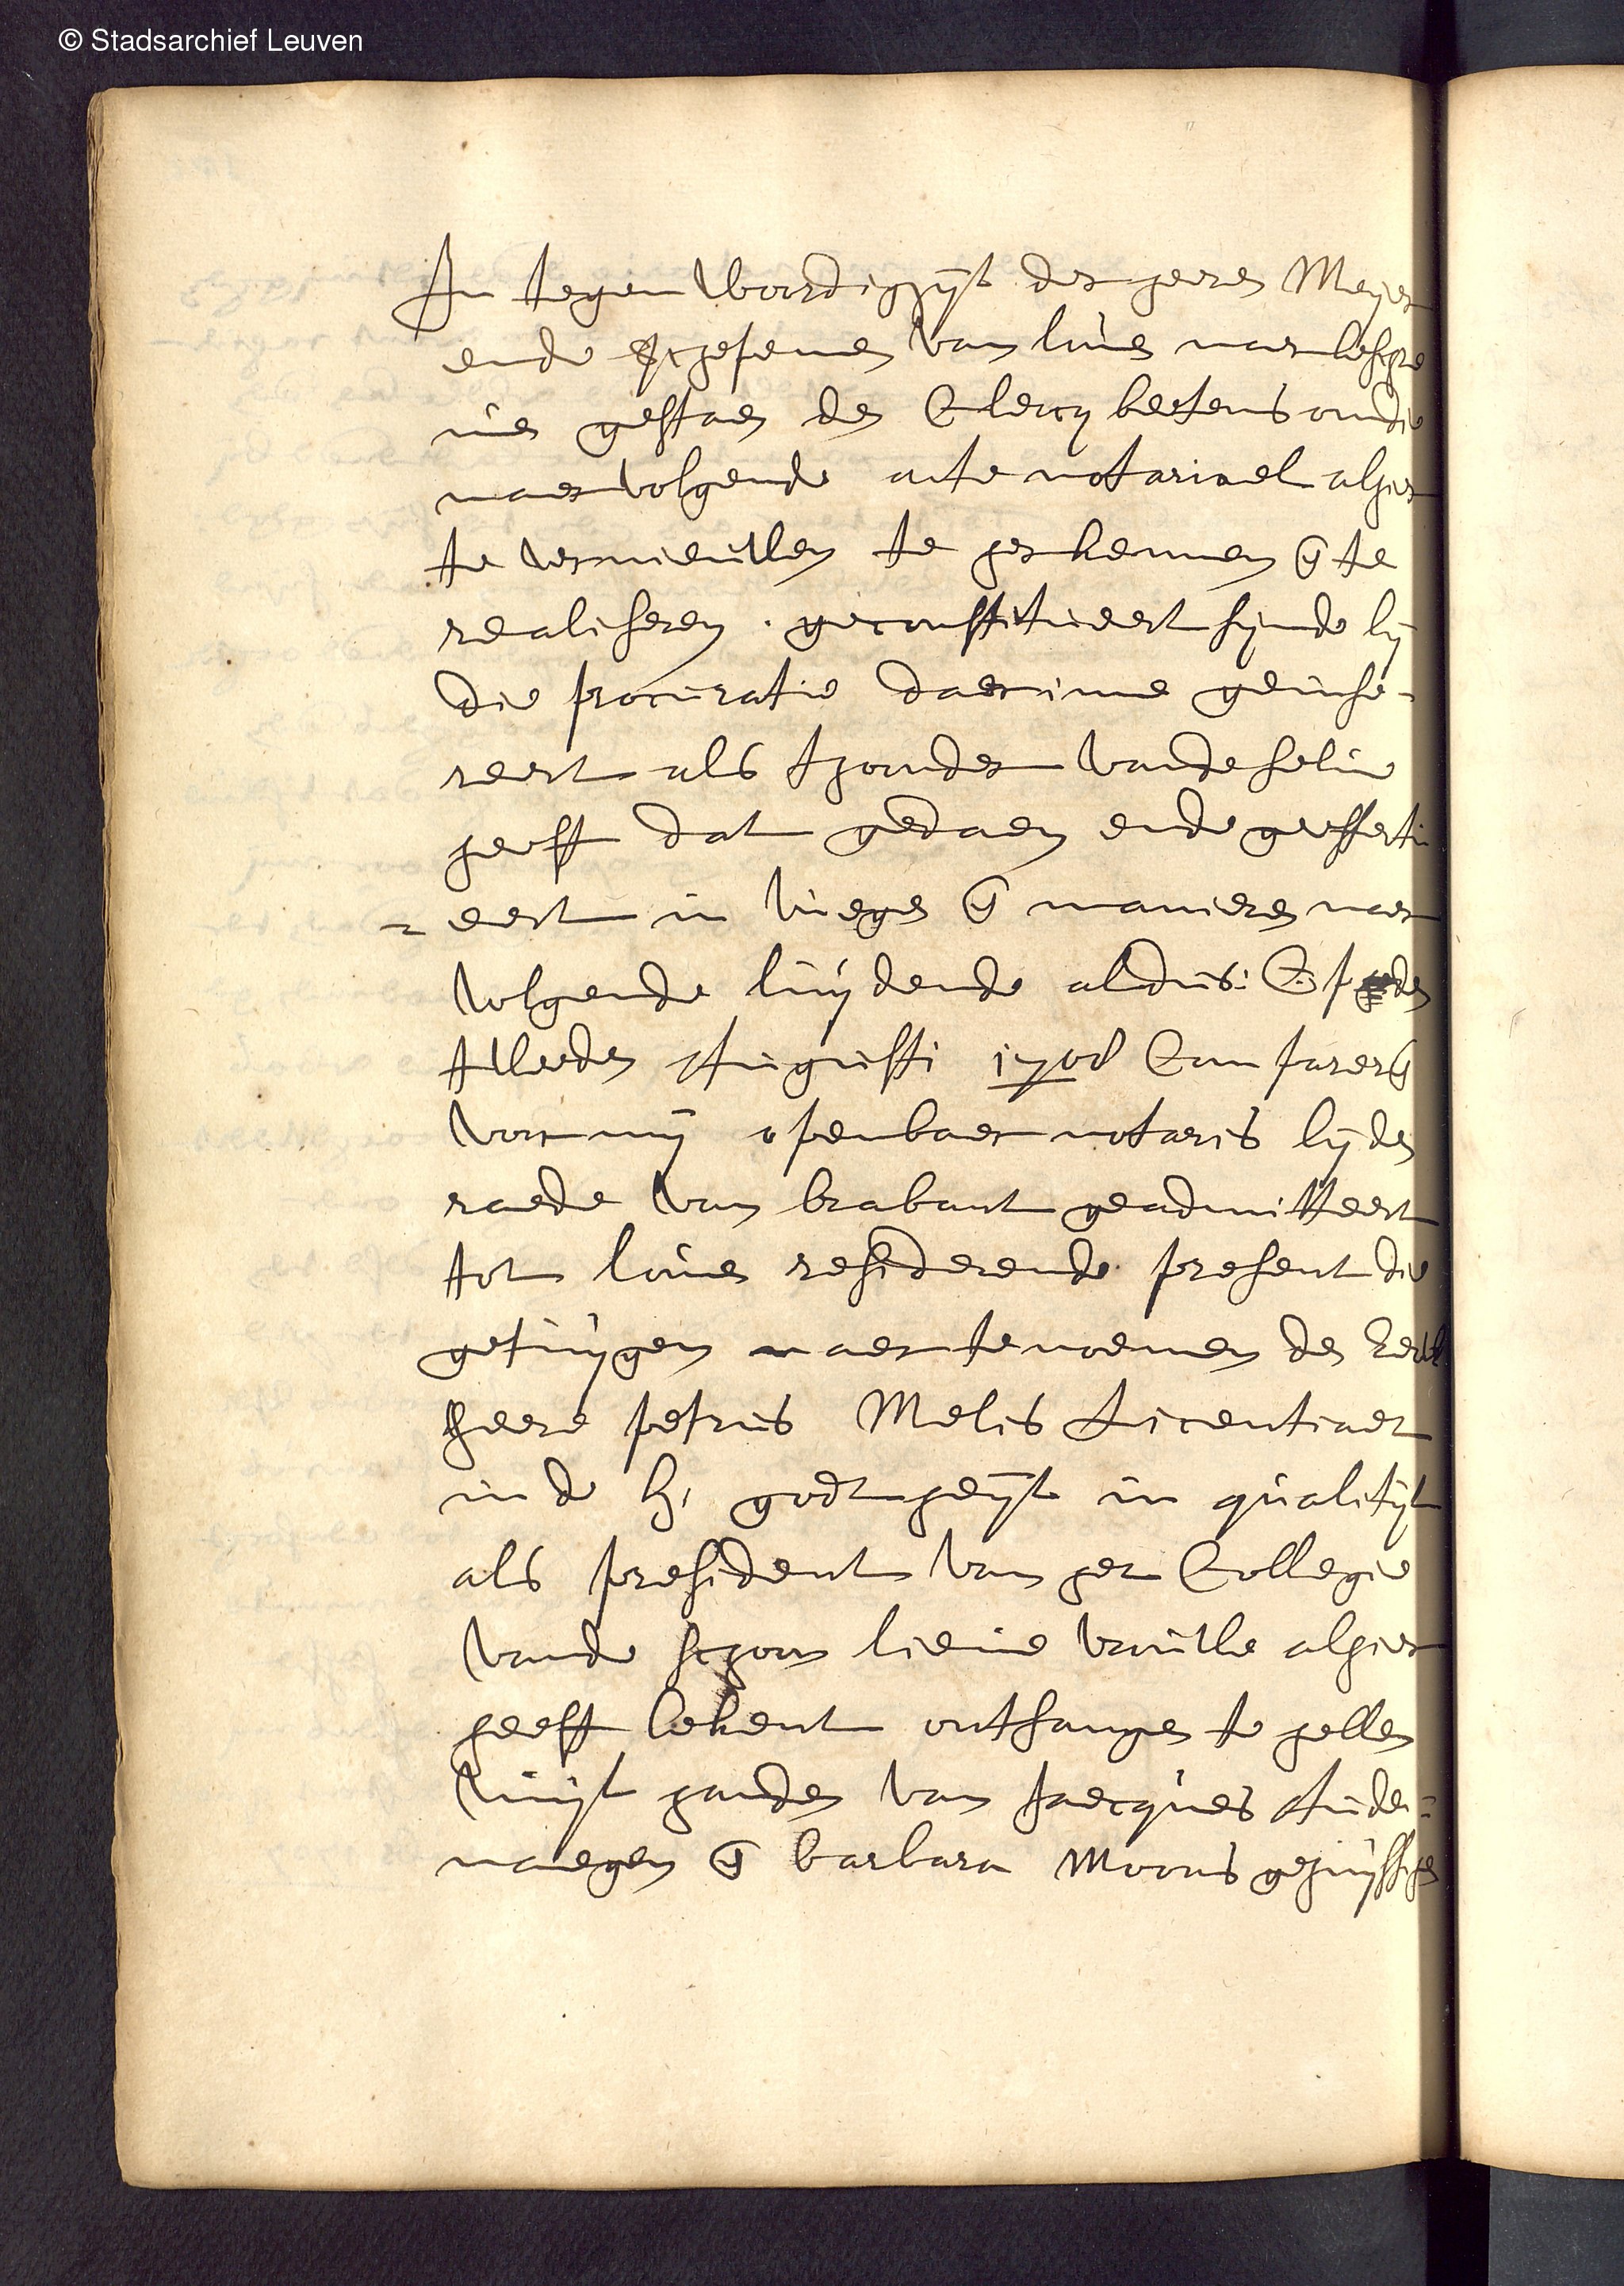 © Stadsarchief Leuven
In tegenwoordicheyt der heeren Meyer
ende schepenen van loven naerbeschre
ven gestaen den Clercq beetens om die
naervolgende acte notariael alhier
te vernieuwen te herkennen en te
realiseren geconstitueert synde by
die procuratie daerinne geinse-
reert als thoonder vandeselve
heeft dat gedaen ende geeffectu
eert in vuegen en manieren naer
volgende luydende aldus: Op den
tweeden Augusti Compareren
voor my openbaer notaris by den
raede van brabant geadmitteert
tot loven residerende present die
getuygen naer te noemen den Eerw
heere petrus Melis Licentiaet
in de h. godtheyt in qualityt
als president van het Collegie
vande hooge vrouwe alhier
heeft bekent ontfangen te hebben
vuyt handen van Jacques Aude-
naegen en barbara Moons gehuysschen